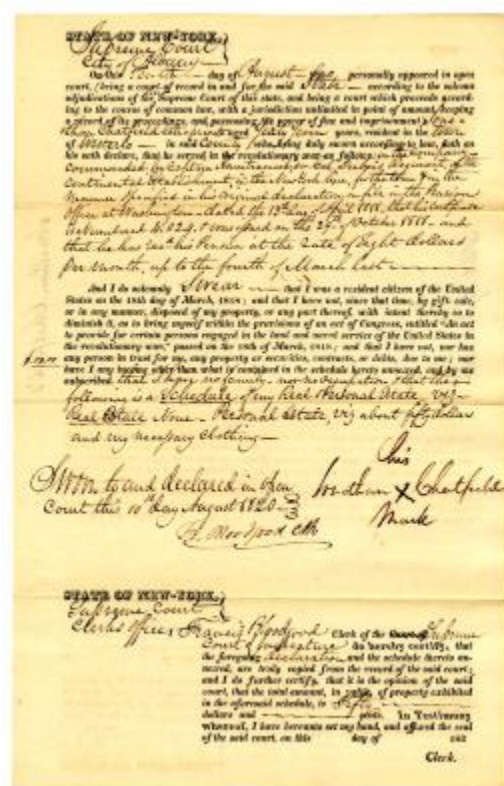 STATE OF NEW-YORK,
Supreme Court
City of Albany
On this Tenth day of August personally appeared in open
court, (being a court of record in and for the said State according to the solemn
adjudications of the Supreme Court of this state, and being a court which proceeds accord-
ing to the course of common law, with a jurisdiction unlimited in point of amount, keeping
a record of its proceedings, and possessing the power of fine and imprisonment)
Chatfield years, resident in the town
of in said County who, being duly sworn according to law, doth on
his oath declare, that he served in the revolutionary war as follows: in the company
commanded by Captain Regiment of the
Continental Establishment, in the New York line, further than in the
manner specified in his original declaration on file in the Pension
Office at Washington dated the 13th day of April 1818, that his certificate
is Numbered 16.024, & was issued on the 29th of October 1818 and
that he has his Pension at the rate of Eight dollars
per month, up to the fourth of March last
And I do solemnly Swear that I was a resident citizen of the United
States on the 18th day of March, 1818; and that I have not, since that time, by gift, sale,
or in any manner, disposed of my property, or any part thereof, with intent thereby so to
diminish it, as to bring myself within the provisions of an act of Congress, entitled "An act
to provide for certain persons engaged in the land and naval service of the United States in
the revolutionary war," passed on the 18th of March, 1818; and that I have not, nor has
any person in trust for me, any property or securities, contracts, or debts, due to me; nor
have I any income other than what is contained in the schedule hereto annexed, and by me
subscribed. that I have no family nor no occupation & that the
following is a Schedule of my Real & Personal Estate, viz
Real Estate None - Personal Estate, viz about fifty dollars
and my necessary clothing
Sworn to and declared in open
Court this 10th day August 1820
his
Chatfield
X
Mark
STATE OF NEW-YORK,
Supreme Court
Clerks Office Francis Bloodgood Clerk of the Supreme
Court of Judicature do hereby certify, that
the foregoing declaration and the schedule thereto an-
nexed, are truly copied from the record of the said court;
and I do further certify, that it is the opinion of the said
court, that the total amount, in value, of property exhibited
in the aforesaid schedule, is Fifty
dollars and cents. In Testimony
whereof, I have hereunto set my hand, and affixed the seal
of the said court, on this day of 182
Clerk.